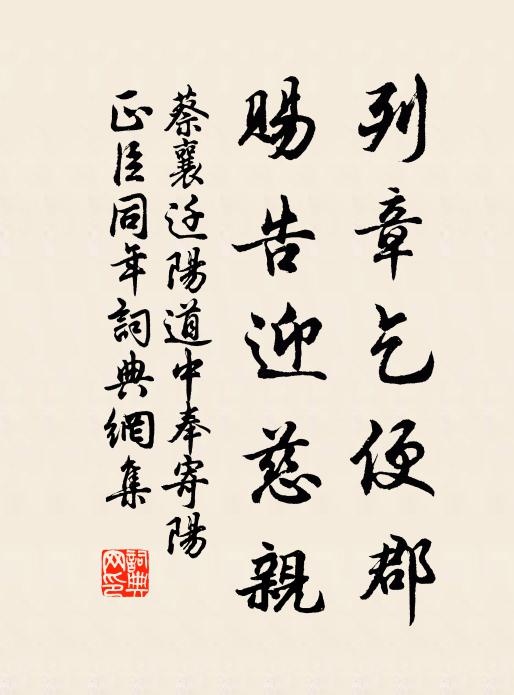 列章乞便郡
賜告迎慈親
蔡襄迂陽道中奉寄陽
正臣同年詞典網集
詞典网印